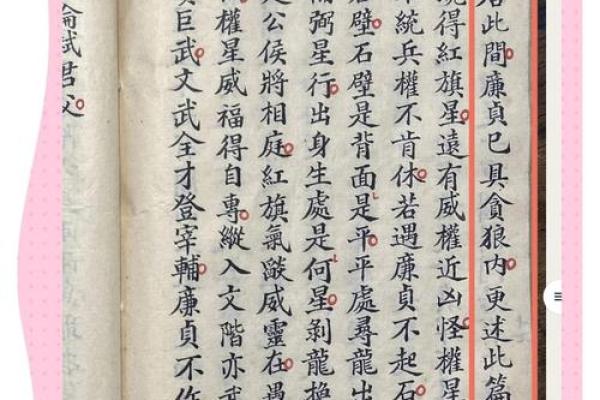 此間廉貞巳具貪狼內更述此篇
得紅旗星遠有威權近凶怪權星
統兵權不肯休若遇廉貞不起石
壁石壁是背面是平平處尋龍出
弼星行出身生處是何星剝龍換
公侯將相庭紅旗氣燄威靈在遇
權星威福得自專縱入文階亦武
巨武文武全才登宰輔廉貞不作
弒君父